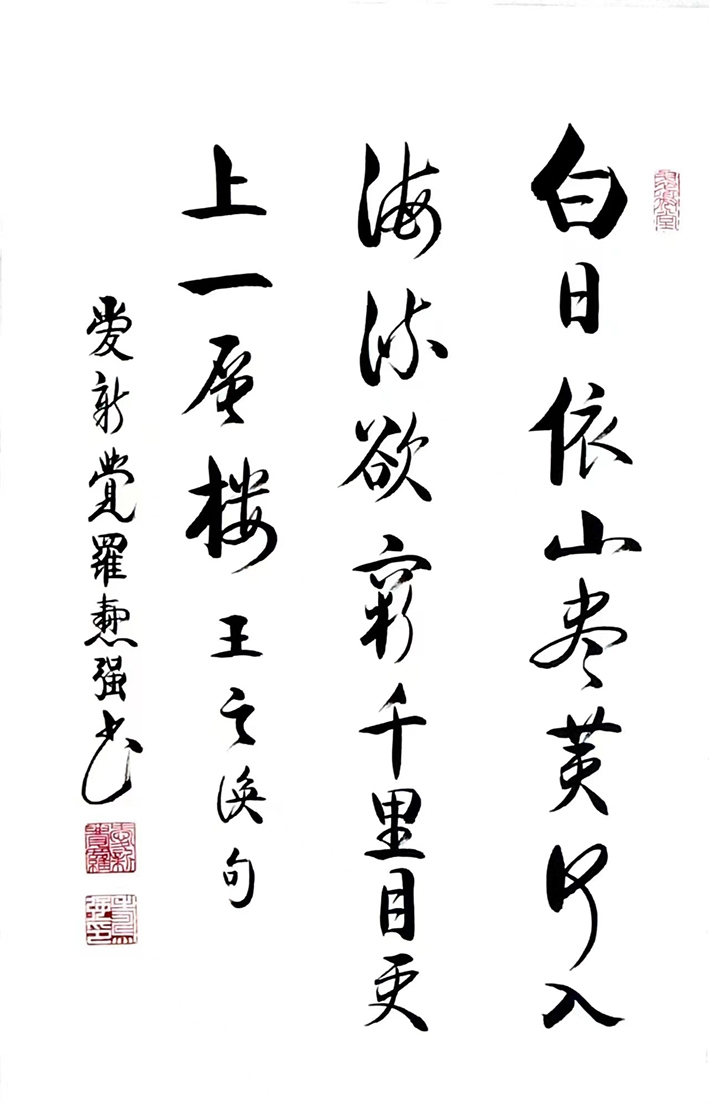 白日依山尽黄河入
海流欲穷千里目更
上一层楼 王之涣句
爱新觉罗 强书